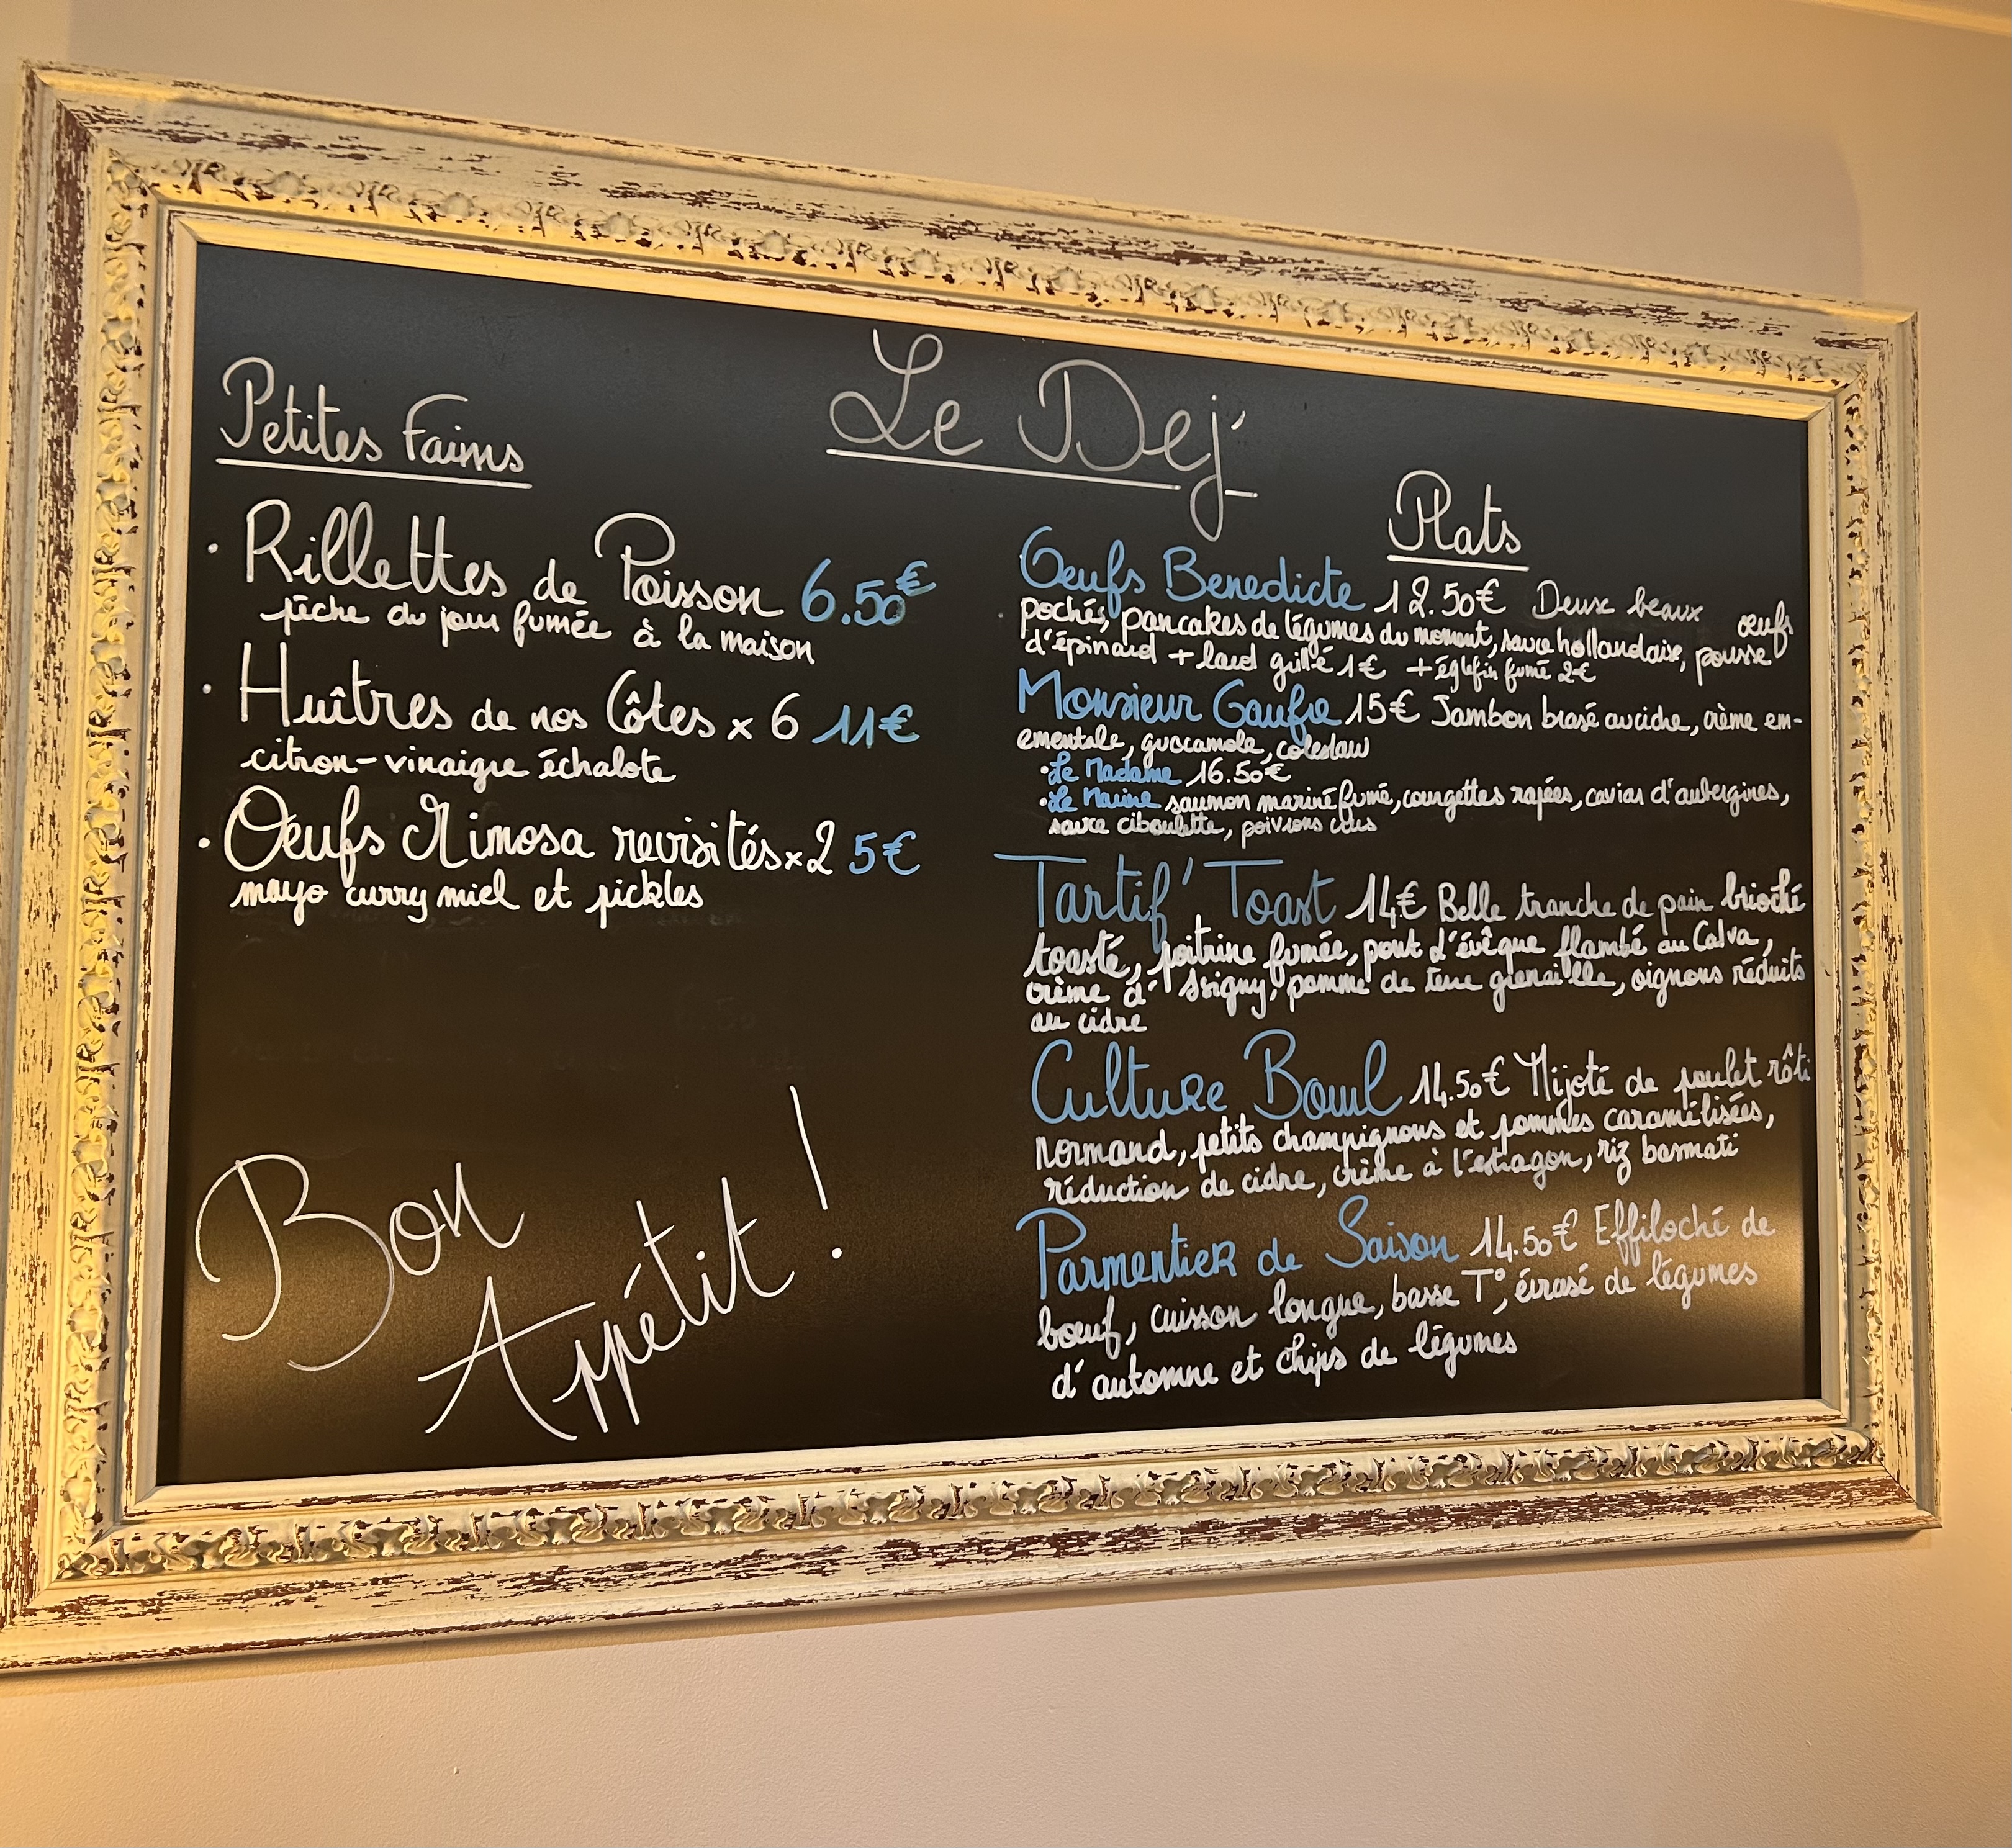 Le Dej'
Petites Faims
• Rillettes de Poisson 6.50€
pêche du jour fumée à la maison
• Huîtres de nos Côtes x 6 11€
citron-vinaigre échalote
• Oeufs Mimosa revisités x2 5€
mayo curry miel et pickles
Bon
Appétit !
Plats
Oeufs Benedicte 12.50€ Deux beaux oeufs
pochés, pancakes de légumes du moment, sauce hollandaise, pousse
d'épinard + lard grillé 1€ + églefin fumé 2€
Monsieur Gaufre 15€ Jambon brasé au cidre, crème em-
ementale, guacamole, coleslaw
• Le Madame 16.50€
• Le Marine saumon mariné fumé, courgettes rapées, caviar d'aubergines,
sauce ciboulette, poivrons crus
Tartif' Toast 14€ Belle tranche de pain brioché
toasté, poitrine fumée, pont d'évêque flambé au Calva,
crème d'Isigny, pomme de terre grenaille, oignons réduits
au cidre
Culture Bowl 14.50€ Mijoté de poulet rôti
normand, petits champignons et pommes caramélisées,
réduction de cidre, crème à l'estragon, riz basmati
Parmentier de Saison 14.50€ Effiloché de
boeuf, cuisson longue, basse T°, écrasé de légumes
d'automne et chips de légumes